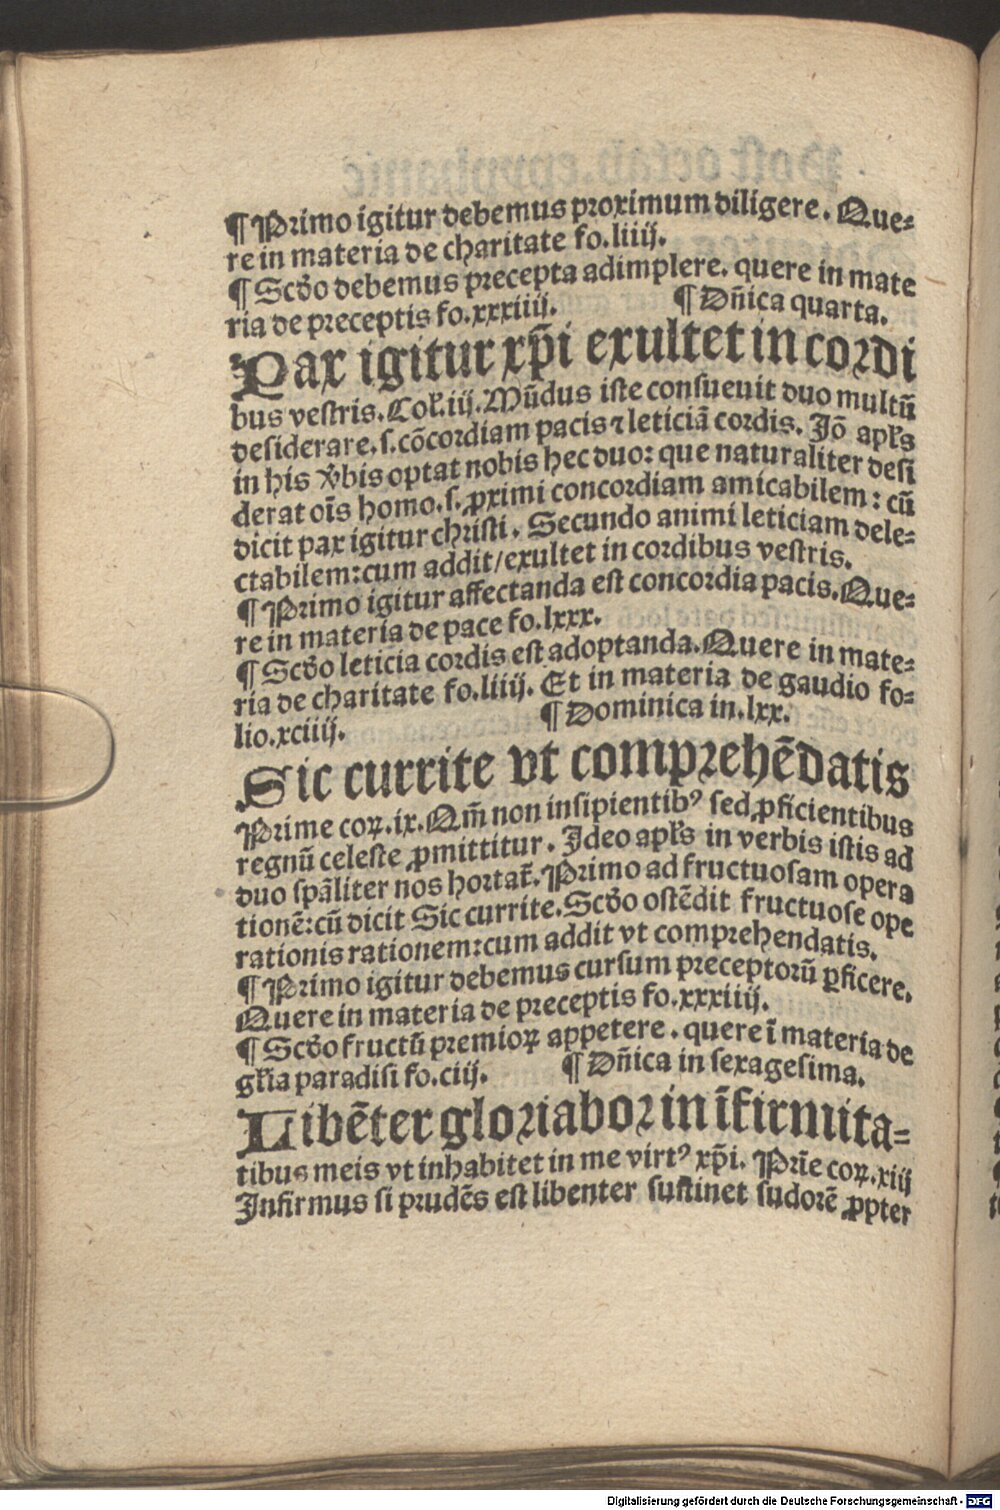 ¶ Primo igitur debemus proximum diligere. Que-
re in materia de charitate fo.liiij.
¶ Scḋo debemus precepta adimplere. quere in mate
ria de preceptis fo.xxxiiij. ¶ Dn̄ica quarta.
Pax igitur xp̄i exultet in cordi
bus vestris. Coł.iij. Mūdus iste consueuit duo multū
desiderare.s.cōcordiam pacis ⁊ leticiā cordis. Jō apłs
in his v̾bis optat nobis hec duo: que naturaliter desi
derat oīs homo.s. ꝓximi concordiam amicabilem: cū
dicit pax igitur christi. Secundo animi leticiam dele-
ctabilem: cum addit/exultet in cordibus vestris.
¶ Primo igitur affectanda est concordia pacis. Que-
re in materia de pace fo.lxxx.
¶ Scḋo leticia cordis est adoptanda. Quere in mate-
ria de charitate fo.liiij. Et in materia de gaudio fo-
lio.xciiij. ¶ Dominica in.lxx.
Sic currite vt comprehēdatis
Prime coꝝ.ix. Qm̄ non insipientibꝰ sed ꝓficientibus
regnū celeste ꝓmittitur. Jdeo apłs in verbis istis ad
duo spāliter nos hortat̄. Primo ad fructuosam opera
tionē: cū dicit Sic currite. Scḋo ostēdit fructuose ope
rationis rationem: cum addit vt comprehendatis.
¶ Primo igitur debemus cursum preceptorū ꝑficere.
Quere in materia de preceptis fo.xxxiiij.
¶ Scḋo fructū premioꝝ appetere. quere ī materia de
głia paradisi fo.ciij. ¶ Dn̄ica in sexagesima.
Libēter gloriabor in īfirmita-
tibus meis vt inhabitet in me virtꝰ xp̄i. Prīe coꝝ.xiij
Jnfirmus si prudēs est libenter sustinet sudorē ꝓpter
Digitalisierung gefördert durch die Deutsche Forschungsgemeinschaft - DFG